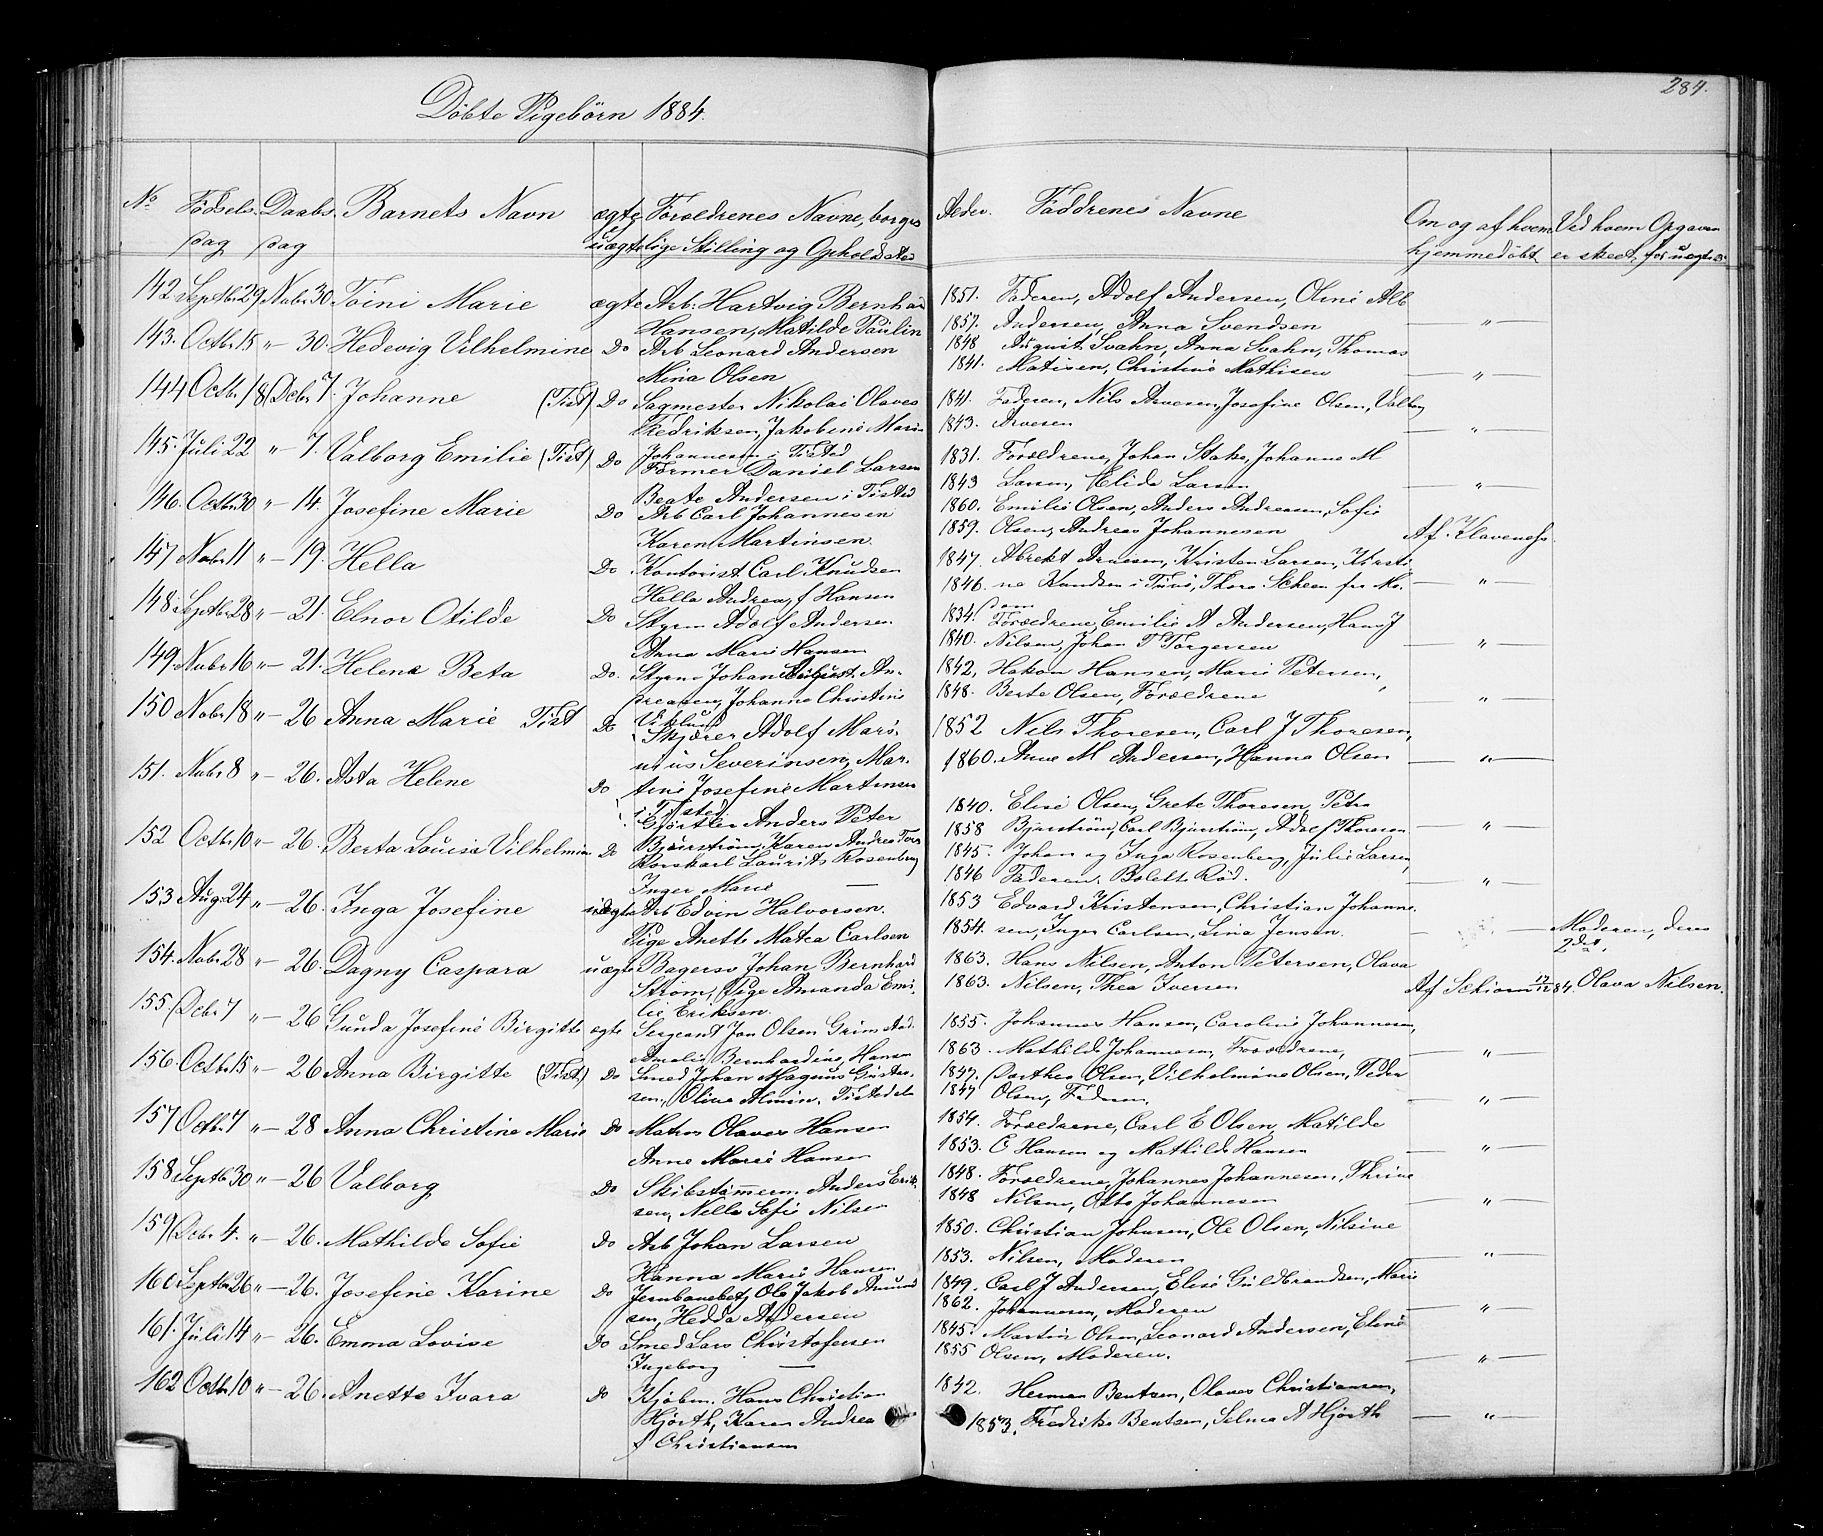 Döbte Pigebörn 1884.
284.
No Födsels Daabs Barnets Navn ægte Forældrenes Navne, borger Alder. Faddrenes Navne Om og af hvem Ved hvem Opgaven
dag dag uægte lige Stilling og Opholdsted hjemmedöbt er skeet, for uægte
142 Septbr 29 Nobr 30 Toini Marie ægte Arb: Hartvig Bernhar 1851. Faderen, Adolf Andersen, Oline Alb
Hansen, Matilde Paulin 1857. Andersen, Anna Svendsen — " —
143. Octbr 15 " — 30. Hedevig Vilhelmine Do Arb Leonard Andersen 1848 August Svahn, Anna Svahn, Thomas
Mina Olsen 1841. Matisen, Christine Mathisen — " —
144 Octbr 18 Debr 7. Johanne (Tist) Do Sagmester Nikolai Olaves 1841. Faderen, Nils Arvesen, Josefine Olsen, Valbor
Fredriksen, Jakobine Marie 1843. Arvesen — " —
Johannesen i Tisted
145. Juli 22 " — 7. Valborg Emilie (Tist) Do Former Daniel Larsen 1831. Forældrene, Johan Stake, Johanne M
Beate Andersen i Tisted 1843 Larsen, Elida Larsen — " —
146. Octbr 30 " — 14. Josefine Marie Do Arb Carl Johannesen 1860. Emilie Olsen, Anders Andreasen, Sofie
Karen Martinsen 1859. Olsen, Andreas Johannesen Af Klaveness
147 Nobr 11 " — 19. Hella Do Kontorist Carl Knudsen 1847. Abrekt Arnesen, Kristen Larsen, Kirsti
Hella Andrea f Hansen 1846. ne Knudsen i Tune, Thora Scheen fra Mo. — " —
148 Septbr 28 " — 21. Elnor Otilde Do Styrm Adolf Andersen 1834. Forældrene, Emilie A Andersen, Hans J
Anna Marie Hansen 1840. Nilsen, Johan T Torgersen — " —
149. Nobr 16 " — 21. Helena Beta Do. Styrm Johan August An- 1842. Hakon Hansen, Marie Petersen,
dreasen, Johanne Christine 1848. Berte Olsen, Forældrene — " —
150 Nobr 18 " — 26 Anna Marie Tist Do Skjærer Adolf Mari- 1852 Nils Thoresen, Carl J Thoresen,
nius Severinsen, Mar- 1860. Anne M Andersen, Hanna Olsen — " —
tine Josefine Martinsen
i Tisted
151. Nobr 8 " — 26. Asta Helene Do Gjørtler Anders Peter 1840. Elise Olsen, Grete Thoresen, Petra
Bjurström, Karen Andrea Tors 1858 Bjurström, Carl Bjurström, Adolf Thoresen — " —
152 Octbr 10 " — 26. Berta Louisa Vilhelmine Do Laurits Rosenberg 1845. Johan og Inga Rosenberg, Julie Larsen,
Inger Marie — 1846 Faderen, Bolette Röd. — " —
153 Aug 24 " — 26. Inga Josefine uægte Arb Edvin Halvorsen. 1853 Edvard Kristensen, Christian Johanne-
Pige Anette Matea Carlsen 1854. sen, Inger Carlsen, Lina Jensen. — — Moderen, deres 2det.
154. Nobr 28 " — 26. Dagny Caspara uægte Bagersv Johan Bernhard 1863. Hans Nilsen, Anton Petersen, Olava
Ström, Pige Amanda Emi- 1863. Nilsen, Thea Iversen Af Schiorn 17/12 84. Olava Nilsen.
lie Eriksen.
155 Debr 7 " — 26 Gunda Josefine Birgitte ægte Sergeant Jon Olsen Grimstad. 1855. Johannes Hansen, Caroline Johannesen,
Amalie Bernhardine Hansen 1863. Mathilde Johannesen, Forældrene, — " —
156 Octbr 15 " — 26 Anna Birgitte (Tist) Do Smed Johan Magnus Gustav- 1847. Dorthea Olsen, Vilhelmine Olsen, Peder
sen, Olina Almin. Tistedalen 1847 Olsen, Faderen. — " —
157 Octbr 7 " — 28 Anna Christine Marie Do Matros Olaves Hansen 1854. Forældrene, Carl E Olsen, Matilde
Anne Marie Hansen 1853. O Hansen og Mathilde Hansen — " —
158 Septbr 30 " — 26 Valborg Do Skibstömmerm Anders Erik- 1848. Forældrene, Johannes Johannesen, Thrine
sen, Nella Sofie Nilsen 1848 Nilsen, Otto Johannesen — " —
159 Debr 4. " — 26. Mathilde Sofie Do Arb Johan Larsen 1850. Christian Johnsen, Ole Olsen, Nilsine
Hanna Marie Hansen 1853. Nilsen, Moderen — " —
160 Septbr 26 " — 26. Josefine Karine Do Jernbanebet, Ole Jakob Amund 1849. Carl J Andersen, Elise Guldbrandsen, Marie
sen, Hedda Andersen 1862. Johannesen, Moderen — " —
161. Juli 14 " — 26. Emma Lovise Do Smed Lars Christofersen 1845. Martin Olsen, Leonard Andersen, Eline
Ingeborg — 1855 Olsen, Moderen. — " —
162 Octbr 10 " — 26. Anette Ivara Do Kjöbm. Hans Christian 1842. Herman Bentsen, Olaves Christiansen,
Hjorth, Karen Andrea 1853. Fredrikke Bentsen, Selma A Hjorth — " —
f Christiansen